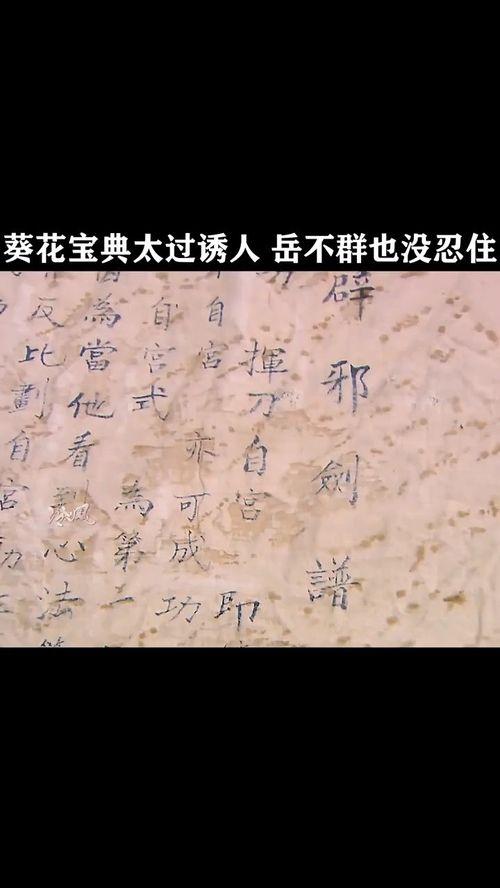 葵花宝典太过诱人 岳不群也没忍住
辟邪劍譜
揮刀自宮即
自宮亦可成功
自宮式為第二
為當他看心法
反比劃自宮